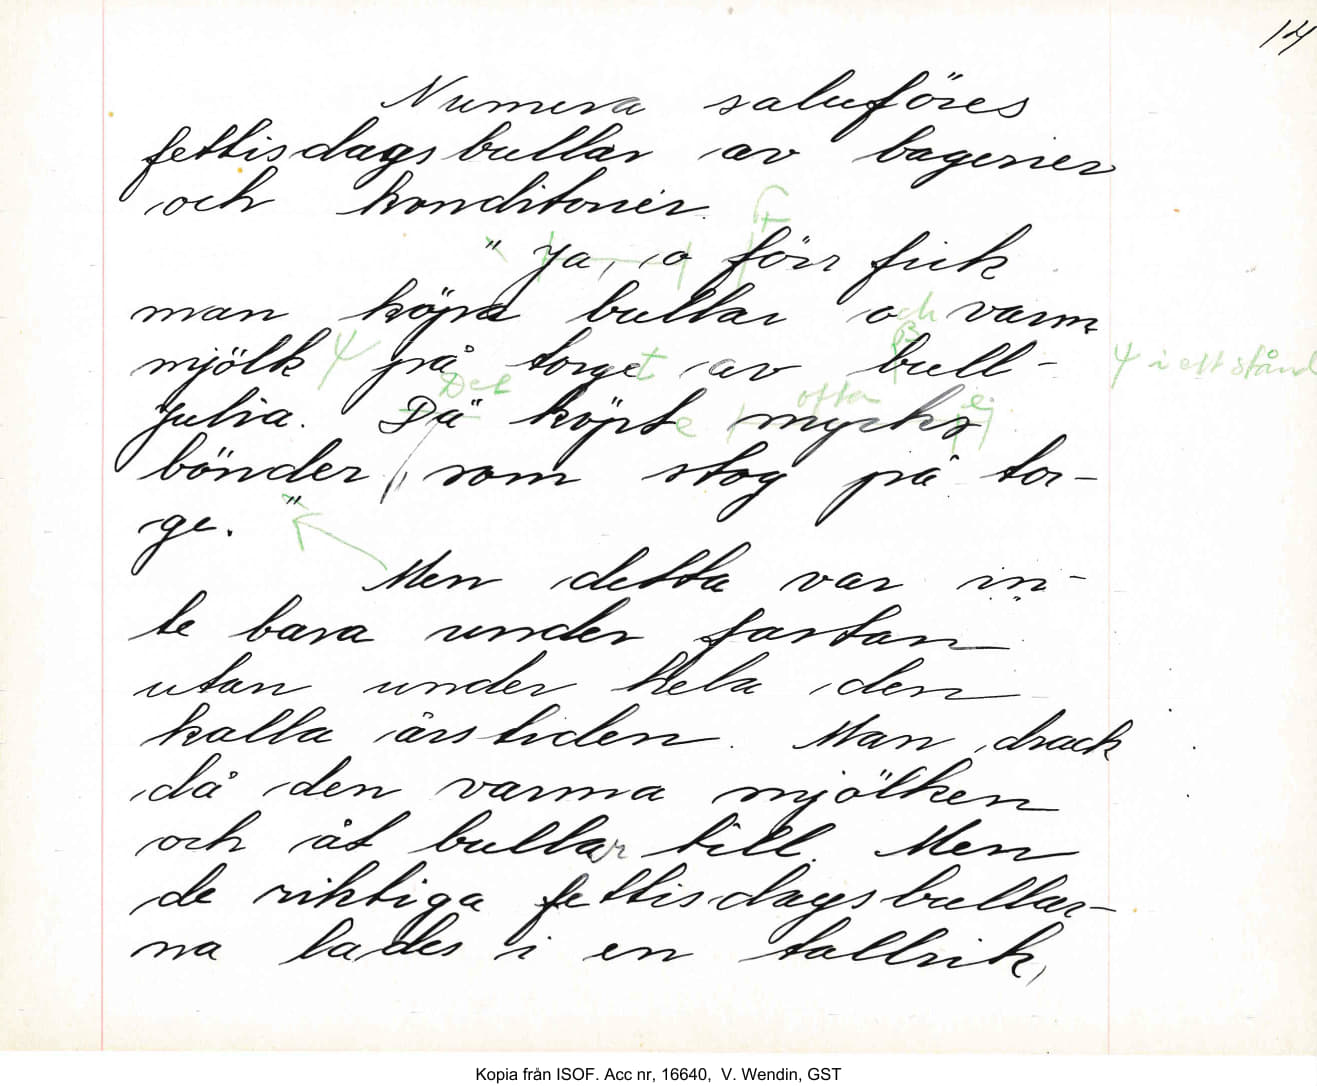 14
Numera saluföres
fettisdagsbullar av bagerier
och konditorier.
" Ja, o förr fick
man köpa bullar och varm
mjölk på torget av bull- i ett stånd
Det ofta ej
julia. Dä" köpte mycke
bönder, som stog på tor-
ge. "
Men detta var in-
te bara under fastan
utan under hela den
kalla årstiden. Man drack
då den varma mjölken
och åt bullar till. Men
de riktiga fettisdagsbullar-
na lades i en tallrik,
Kopia från ISOF. Acc nr, 16640, V. Wendin, GST